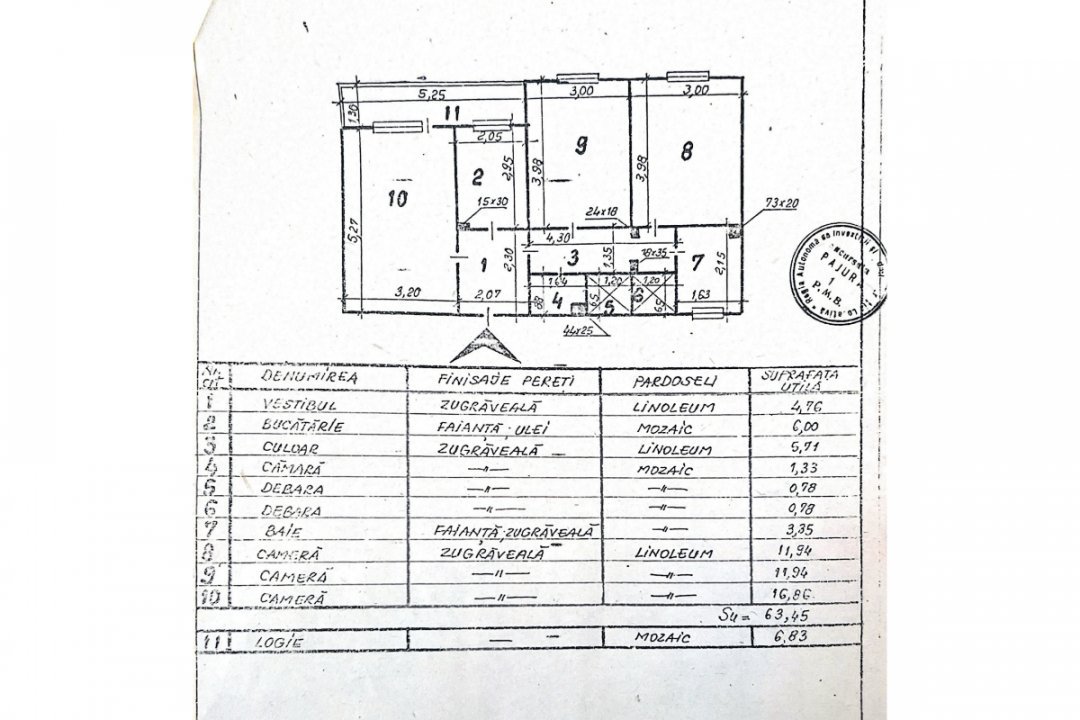 5,25
3,00
3,00
1,30
11
2,05
9
8
2,95
3,98
3,98
2
10
15x30
24x18
73x20
5,27
4,30
2,30
3
1,35
18x35
7
2,15
1
1,64
1,20
1,20
3,20
2,07
88
4
65
5
6
65
1,63
44x25
Regia Autonomă
PAJURA
1
P.M.B.
NR. CRT DENUMIREA FINISAJE PERETI PARDOSELI SUPRAFAȚA UTILĂ
1 VESTIBUL ZUGRĂVEALĂ LINOLEUM 4,76
2 BUCĂTĂRIE FAIANȚĂ·ULEI MOZAIC 6,00
3 CULOAR ZUGRĂVEALĂ LINOLEUM 5,71
4 CĂMARĂ —"— MOZAIC 1,33
5 DEBARA —"— —"— 0,78
6 DEBARA —"— —"— 0,78
7 BAIE FAIANȚĂ;ZUGRĂVEALĂ —"— 3,35
8 CAMERĂ ZUGRĂVEALĂ LINOLEUM 11,94
9 CAMERĂ —"— —"— 11,94
10 CAMERĂ —"— —"— 16,86
Su= 63,45
11 LOGIE — MOZAIC 6,83